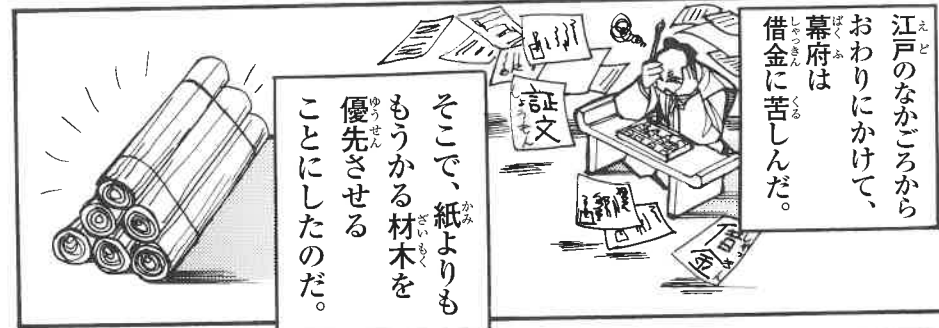 江戸のなかごろから
おわりにかけて、
幕府は
借金に苦しんだ。
証文
借金
そこで、紙よりも
もうかる材木を
優先させる
ことにしたのだ。